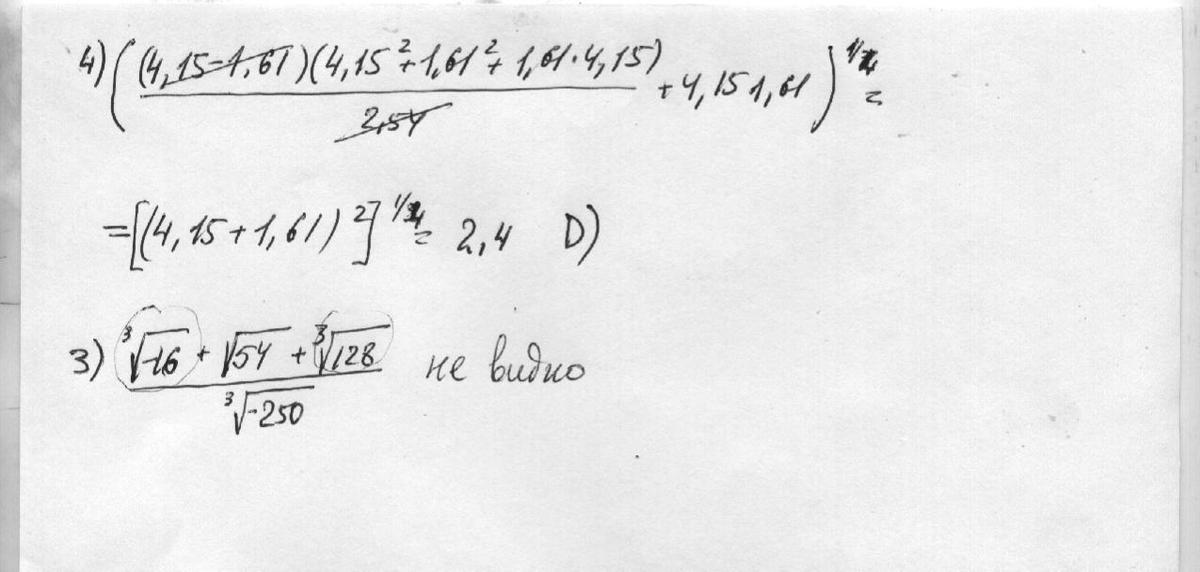 4) ((4,15-1,61)(4,15²+1,61²+1,61·4,15)/2,54 + 4,15 1,61)^1/4 =
=[(4,15+1,61)²]^1/4 = 2,4 D)
3) (³√-16 + √54 + ³√128)/³√-250 не видно